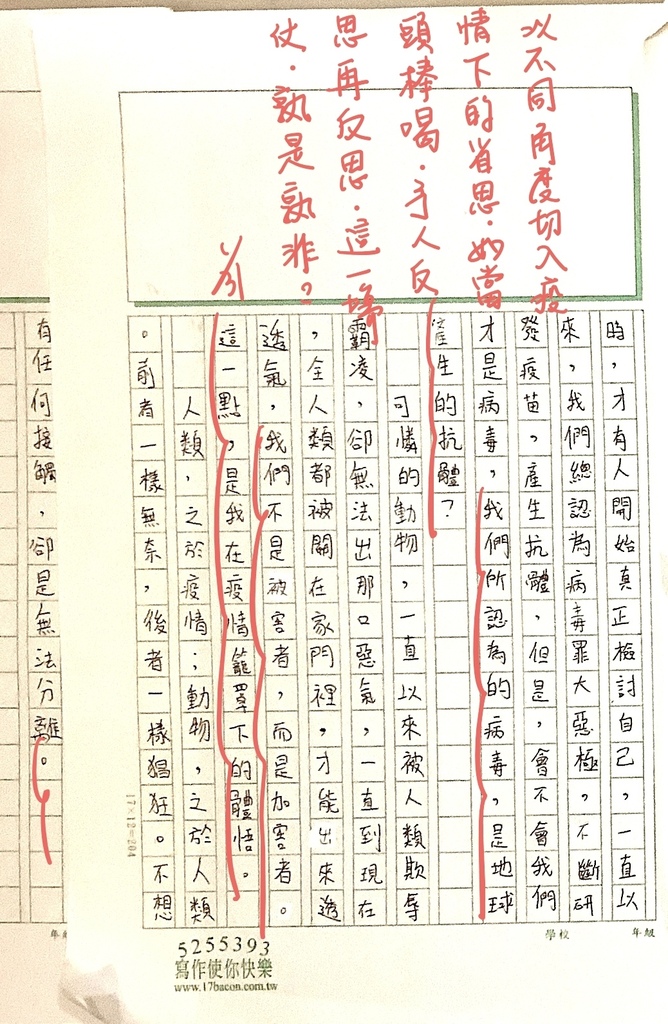 以不同角度切入疫
情下的省思，如當
頭棒喝，予人反
思再反思，這一場
仗，孰是孰非？
時，才有人開始真正檢討自己，一直以
來，我們總認為病毒罪大惡極，不斷研
發疫苗，產生抗體，但是，會不會我們
才是病毒，我們所認為的病毒，是地球
產生的抗體？
可憐的動物，一直以來被人類欺辱
霸凌，卻無法出那口惡氣，一直到現在
，全人類都被關在家門裡，才能出來透
透氣，我們不是被害者，而是加害者。
這一點，是我在疫情籠罩下的體悟。
人類，之於疫情；動物，之於人類
。前者一樣無奈，後者一樣猖狂。不想
有任何接觸，卻是無法分離。
17×12=204
學校
年級
5255393
寫作使你快樂
www.17bacon.com.tw